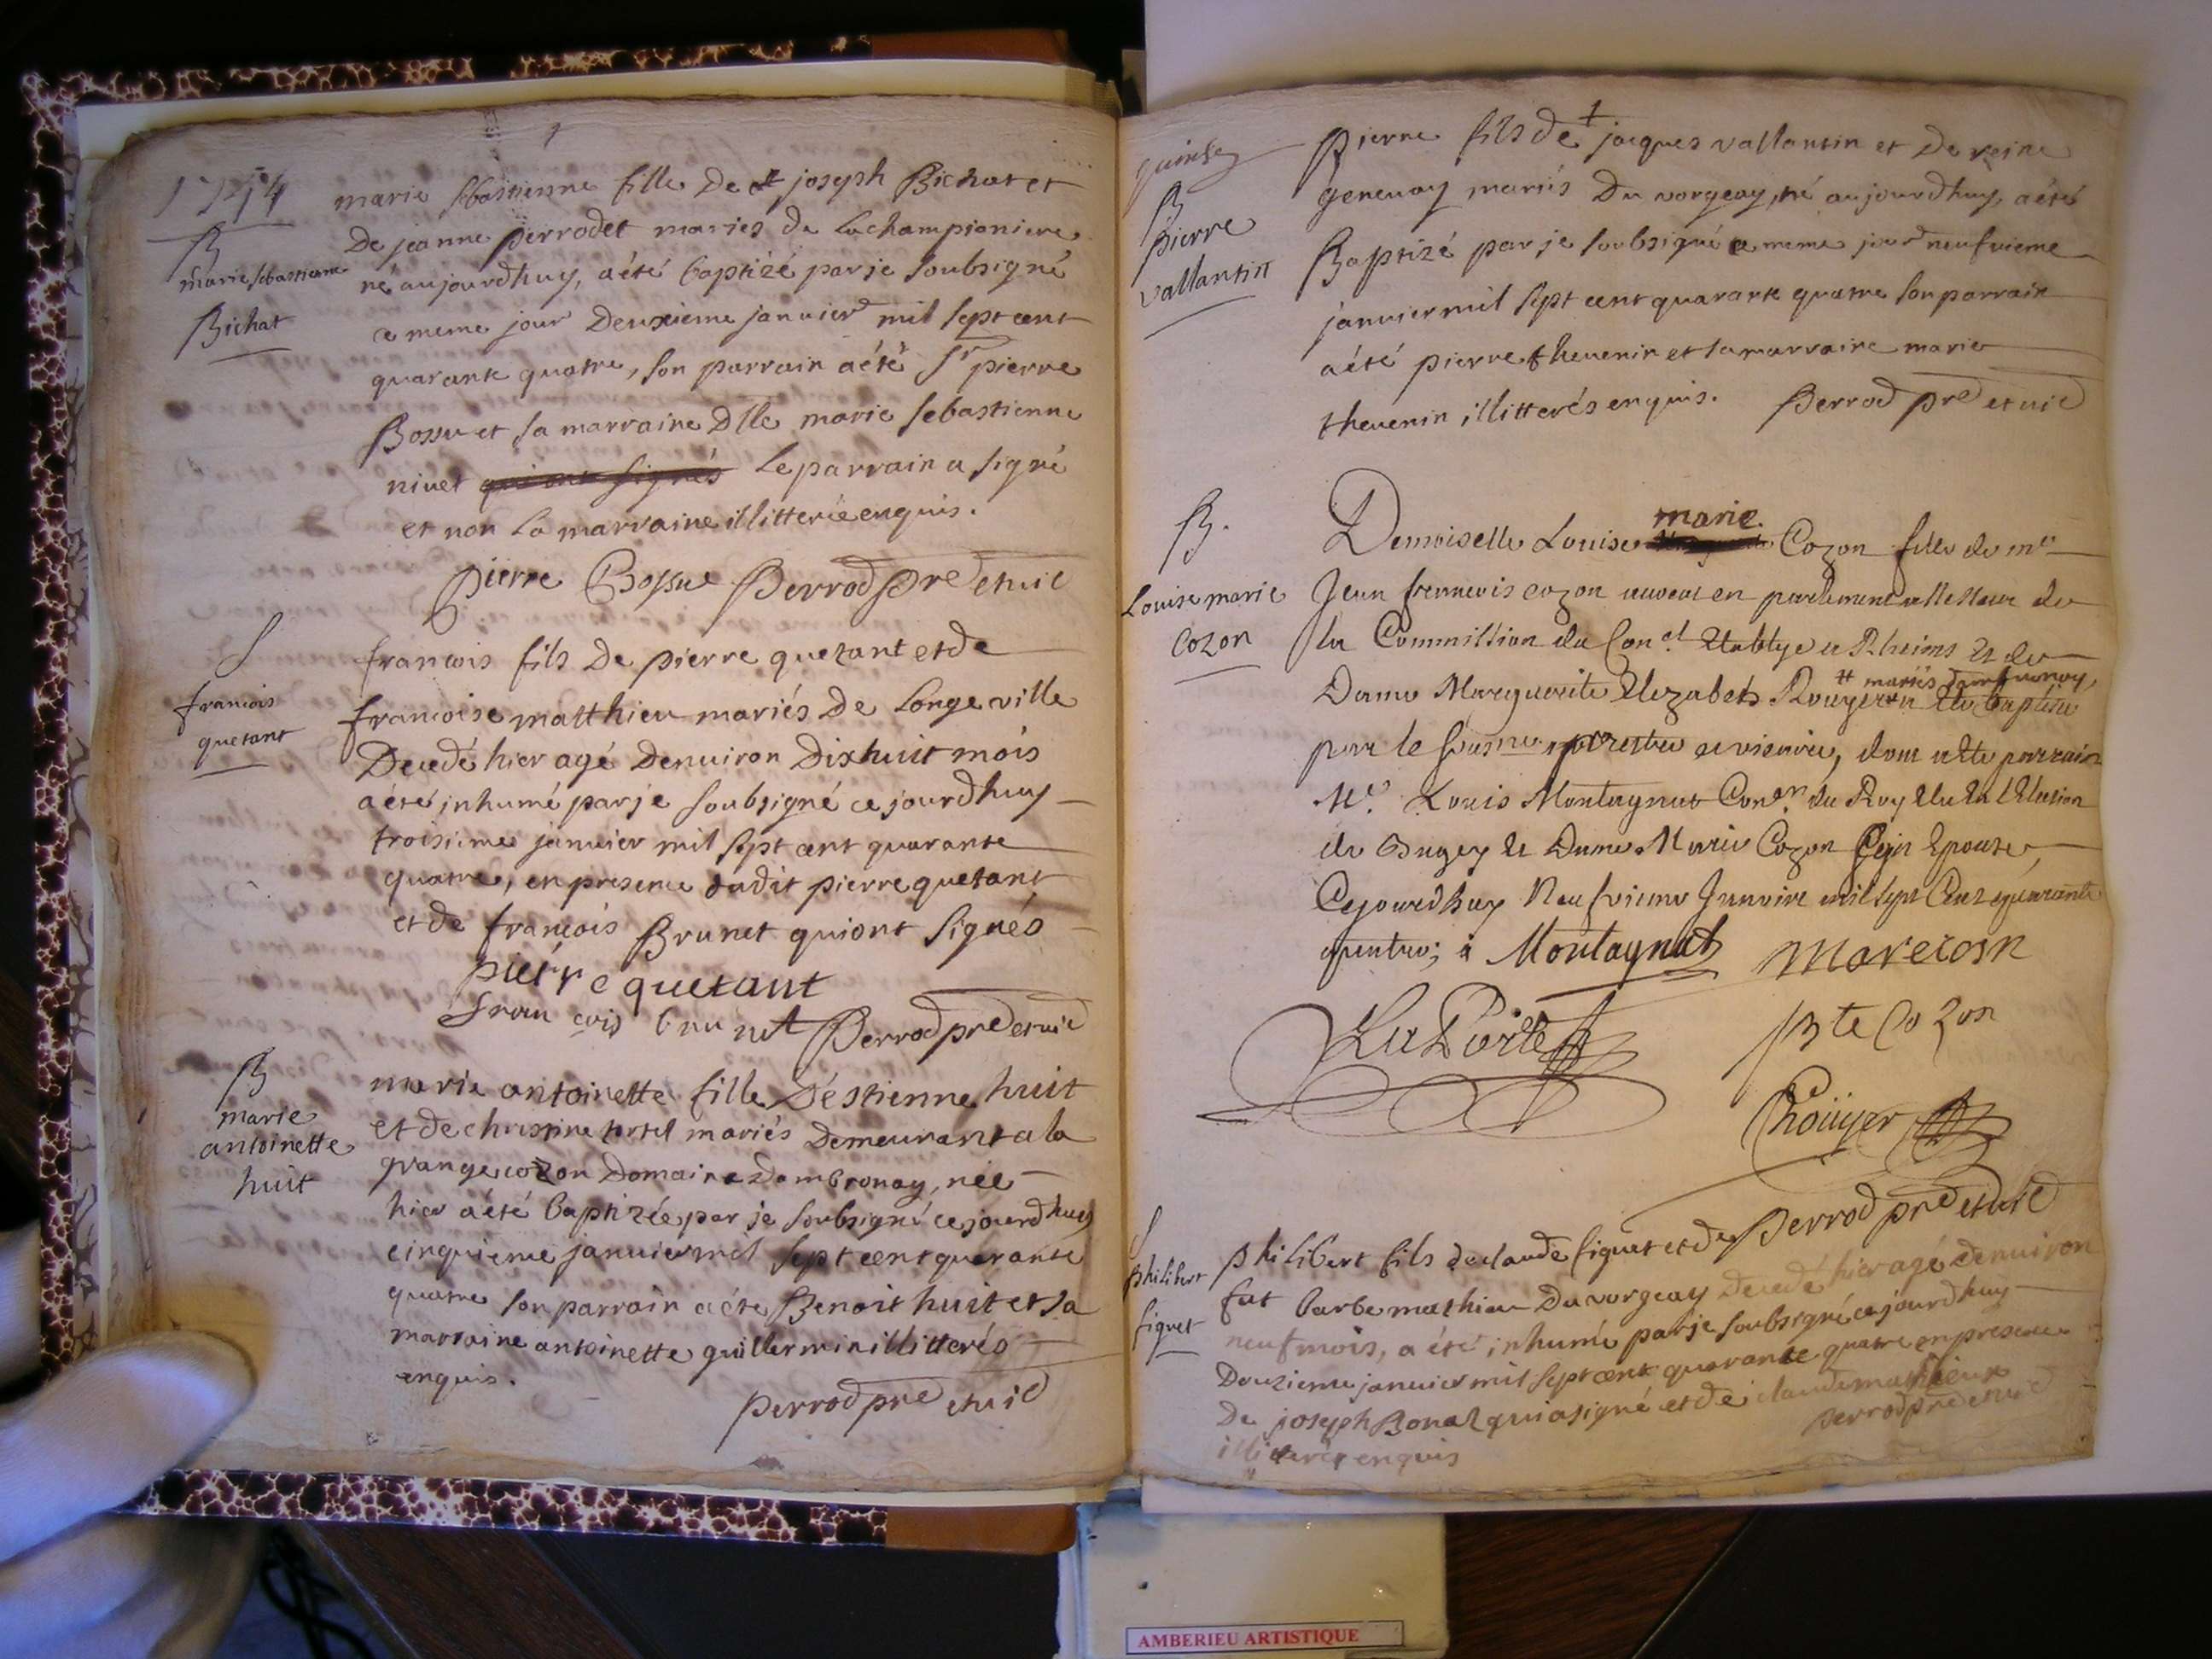 1744
B
marie sebastienne
Bichat
marie sebastienne fille De joseph Bichat et
De jeanne perrodet mariés de Lachampioniere
né aujourdhuy, a été baptizé par je soubsigné
ce meme jour Deuxieme janvier mil sept cent
quarante quatre, son parrain a été Sr pierre
Bossu et sa marraine Dlle marie sebastienne
nivet qui ont signés Le parrain a signé
et non La marraine illitterée enquis.
pierre Bossue Perrod pre et vic
S
francois
quetant
francois fils De pierre quetant et de
francoise matthieu mariés De Longeville
Decedé hier agé Denviron Dixhuit mois
a été inhumé par je soubsigné ce jourdhuy
troisieme janvier mil sept cent quarante
quatre, en presence dudit pierre quetant
et de francois Brunet qui ont signés
pierre quetant
francois brunet Perrod pre et vic
B
marie
antoinette
huit
marie antoinette fille Destienne huit
et de christine mariés Demeurant a la
grange cozon Domaine Dambronay, née
hier a été baptizée par je soubsigné ce jourdhuy
cinquieme janvier mil sept cent quarante
quatre son parrain a été Benoit huit et sa
marraine antoinette guillermin illitterés
enquis.
perrod pre et vic
B
pierre
vallantin
Pierre fils de jacques vallantin et De reine
genevay mariés Du vorgeay, né aujourdhuy, a été
Baptizé par je soubsigné ce meme jour neufvieme
janvier mil sept cent quarante quatre son parrain
a été pierre thevenin et sa marraine marie
thevenin illitterés enquis. Perrod pre et vic
B.
Louise marie
Cozon
marie
Demoiselle Louise Cozon fille de me
Jean francois cozon avocat en parlement assesseur de
la Commission du Con.el Etablye a Rheims et de
# mariés dambronay,
Dame Marguerite Elizabeth Rouyer # a été baptisée
par le sousne prestre et vicaire, dont a été parrain
Me. Louis Montagnat Coner. du Roy Elu en l'Election
de Bugey et Dame Marie Cozon son Epouse,
Cejourdhuy Neufvieme Janvier mil sept Cent quarante
quatre; à Montagnat
LaPorte
Cozon
Rouyer
Perrod pre et vic
S
philibert
figuet
philibert fils de claude figuet et de
fut barbe mathieu Du vorgeay Decedé hier agé Denviron
neuf mois, a été inhumé par je soubsigné ce jourdhuy
Douzieme janvier mil sept cent quarante quatre en presence
De joseph Bonaz qui a signé et de claude mathieux
illitterés enquis
perrod pre et vic
AMBERIEU ARTISTIQUE